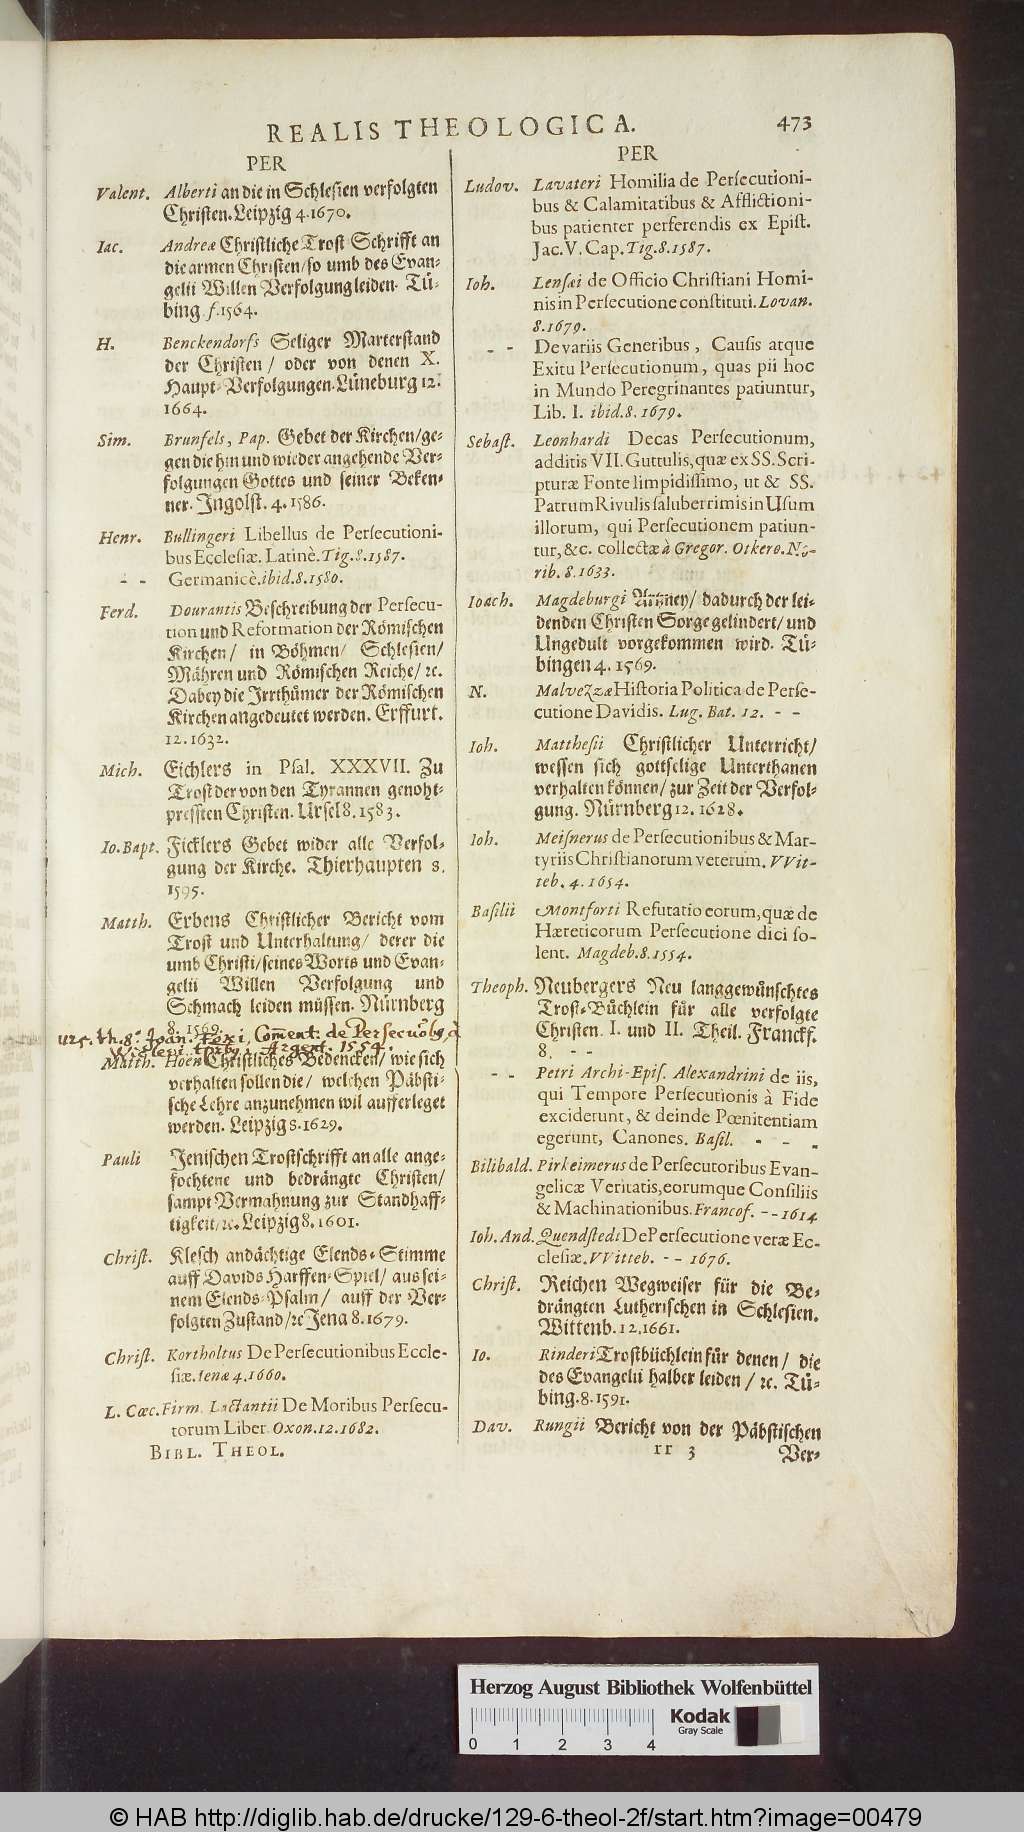 REALIS THEOLOGICA.
473
PER
Valent. Alberti an die in Schlesien verfolgten
Christen. Leipzig 4. 1670.
Iac. Andreæ Christliche Trost-Schrifft an
die armen Christen/ so umb des Evan-
gelii Willen Verfolgung leiden. Tü-
bing. f. 1564.
H. Benckendorfs Seliger Marterstand
der Christen/ oder von denen X.
Haupt-Verfolgungen. Lüneburg 12.
1664.
Sim. Brunfels, Pap. Gebet der Kirchen/ ge-
gen die hin und wieder angehende Ver-
folgungen Gottes und seiner Beken-
ner. Ingolst. 4. 1586.
Henr. Bullingeri Libellus de Persecutioni-
bus Ecclesiæ. Latinè. Tig. 8. 1587.
- - Germanicè. ibid. 8. 1580.
Ferd. Dourantis Beschreibung der Persecu-
tion und Reformation der Römischen
Kirchen/ in Böhmen/ Schlesien/
Mähren und Römischen Reiche/ ꝛc.
Dabey die Irrthümer der Römischen
Kirchen angedeutet werden. Erffurt.
12. 1632.
Mich. Eichlers in Psal. XXXVII. Zu
Trost der von den Tyrannen genoht-
pressten Christen. Ursel 8. 1583.
Io. Bapt. Ficklers Gebet wider alle Verfol-
gung der Kirche. Thierhaupten 8.
1595.
Matth. Erbens Christlicher Bericht vom
Trost und Unterhaltung/ derer die
umb Christi/ seines Worts und Evan-
gelii Willen Verfolgung und
Schmach leiden müssen. Nürnberg
8. 1569.
Joan. Foxi, Coment: de Persecuõib9
Argent. 1554.
Matth. Hoen Christliches Bedencken/ wie sich
verhalten sollen die/ welchen Päbsti-
sche Lehre anzunehmen wil aufferleget
werden. Leipzig 8. 1629.
Pauli Jenischen Trostschrifft an alle ange-
fochtene und bedrängte Christen/
sampt Vermahnung zur Standhaff-
tigkeit/ ꝛc. Leipzig 8. 1601.
Christ. Klesch andächtige Elends-Stimme
auff Davids Harffen-Spiel/ aus sei-
nem Elends-Psalm/ auff der Ver-
folgten Zustand/ ꝛc Jena 8. 1679.
Christ. Kortholtus De Persecutionibus Eccle-
siæ. Ienæ 4. 1660.
L. Cœc. Firm. Lactantii De Moribus Persecu-
torum Liber. Oxon. 12. 1682.
BIBL. THEOL.
PER
Ludov. Lavateri Homilia de Persecutioni-
bus & Calamitatibus & Afflictioni-
bus patienter perferendis ex Epist.
Jac. V. Cap. Tig. 8. 1587.
Ioh. Lensæi de Officio Christiani Homi-
nis in Persecutione constituti. Lovan.
8. 1679.
- - De variis Generibus, Causis atque
Exitu Persecutionum, quas pii hoc
in Mundo Peregrinantes patiuntur,
Lib. I. ibid. 8. 1679.
Sebast. Leonhardi Decas Persecutionum,
additis VII. Guttulis, quæ ex SS. Scri-
pturæ Fonte limpidissimo, ut & SS.
Patrum Rivulis saluberrimis in Usum
illorum, qui Persecutionem patiun-
tur, &c. collectæ à Gregor. Otkero. Nō-
rib. 8. 1633.
Ioach. Magdeburgi Artzney/ dadurch der lei-
denden Christen Sorge gelindert/ und
Ungedult vorgekommen wird. Tü-
bingen 4. 1569.
N. Malvezzæ Historia Politica de Perse-
cutione Davidis. Lug. Bat. 12. - -
Ioh. Matthesii Christlicher Unterricht/
wessen sich gottselige Unterthanen
verhalten können/ zur Zeit der Verfol-
gung. Nürnberg 12. 1628.
Ioh. Meisnerus de Persecutionibus & Mar-
tyriis Christianorum veterum. VVit-
teb. 4. 1654.
Basilii Montforti Refutatio eorum, quæ de
Hæreticorum Persecutione dici so-
lent. Magdeb. 8. 1554.
Theoph. Neubergers Neu langgewünschtes
Trost-Büchlein für alle verfolgte
Christen. I. und II. Theil. Franckf.
8. - -
- - Petri Archi-Epis. Alexandrini de iis,
qui Tempore Persecutionis à Fide
exciderunt, & deinde Pœnitentiam
egerunt, Canones. Basil. - - -
Bilibald. Pirkeimerus de Persecutoribus Evan-
gelicæ Veritatis, eorumque Consiliis
& Machinationibus. Francof. - - 1614
Ioh. And. Quendstedt De Persecutione veræ Ec-
clesiæ. VVitteb. - - 1676.
Christ. Reichen Wegweiser für die Be-
drängten Lutherischen in Schlesien.
Wittenb. 12. 1661.
Io. Rinderi Trostbüchlein für denen/ die
des Evangelii halber leiden/ ꝛc. Tü-
bing. 8. 1591.
Dav. Rungii Bericht von der Päbstischen
rr 3
Ver-
Herzog August Bibliothek Wolfenbüttel
Kodak
Gray Scale
0 1 2 3 4
© HAB http://diglib.hab.de/drucke/129-6-theol-2f/start.htm?image=00479